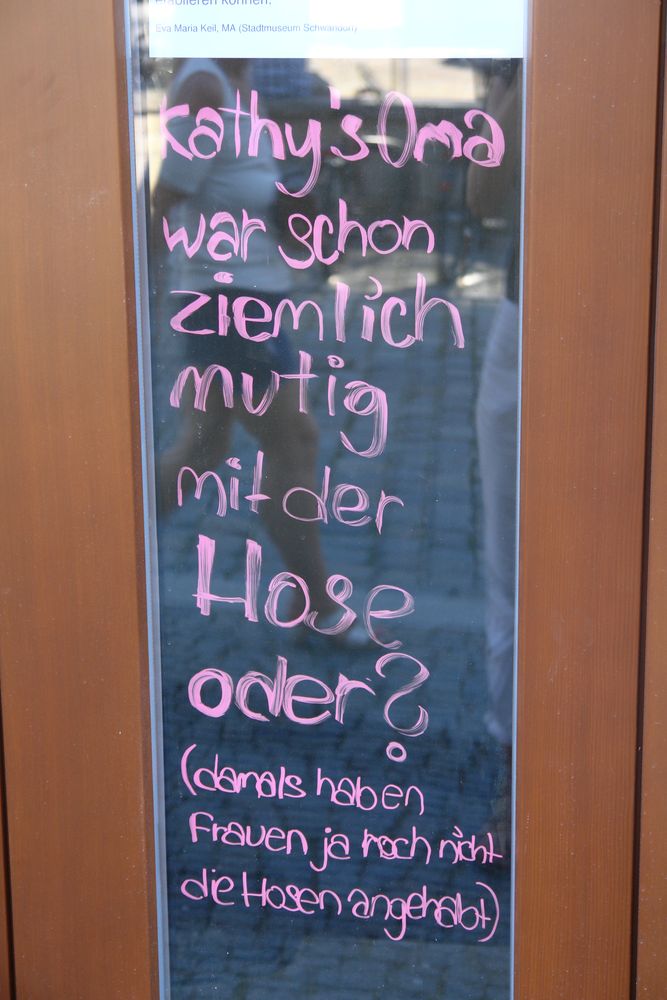 etablieren können.
Eva Maria Keil, MA (Stadtmuseum Schwandorf)
Kathy's Oma
war schon
ziemlich
mutig
mit der
Hose
oder?
(damals haben
Frauen ja noch nicht
die Hosen angehabt)